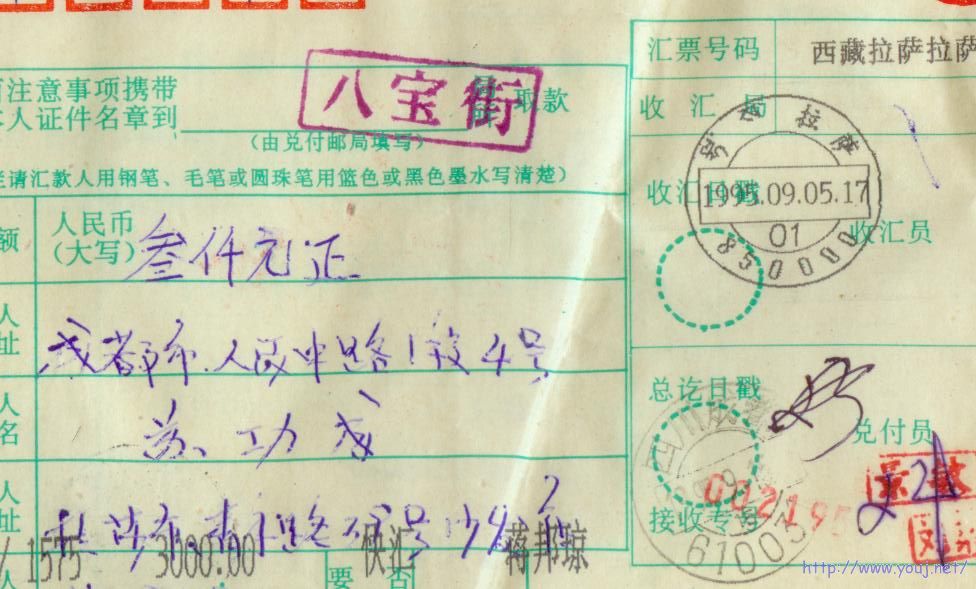 汇票号码 西藏拉萨拉萨
注意事项携带
人证件名章到
取款
八宝街
(由兑付邮局填写)
请汇款人用钢笔、毛笔或圆珠笔用篮色或黑色墨水写清楚)
收汇局
拉萨
收汇日戳
1995.09.05.17
01
850000
收汇员
额
人民币
(大写)
叁仟元正
人
址
成都市人民中路1段4号
人
名
苏功成
总讫日戳
兑付员
接收专号
人
址
1575 3000.00 快汇 蒋邦琼
人
要 否
http://www.youj.net/